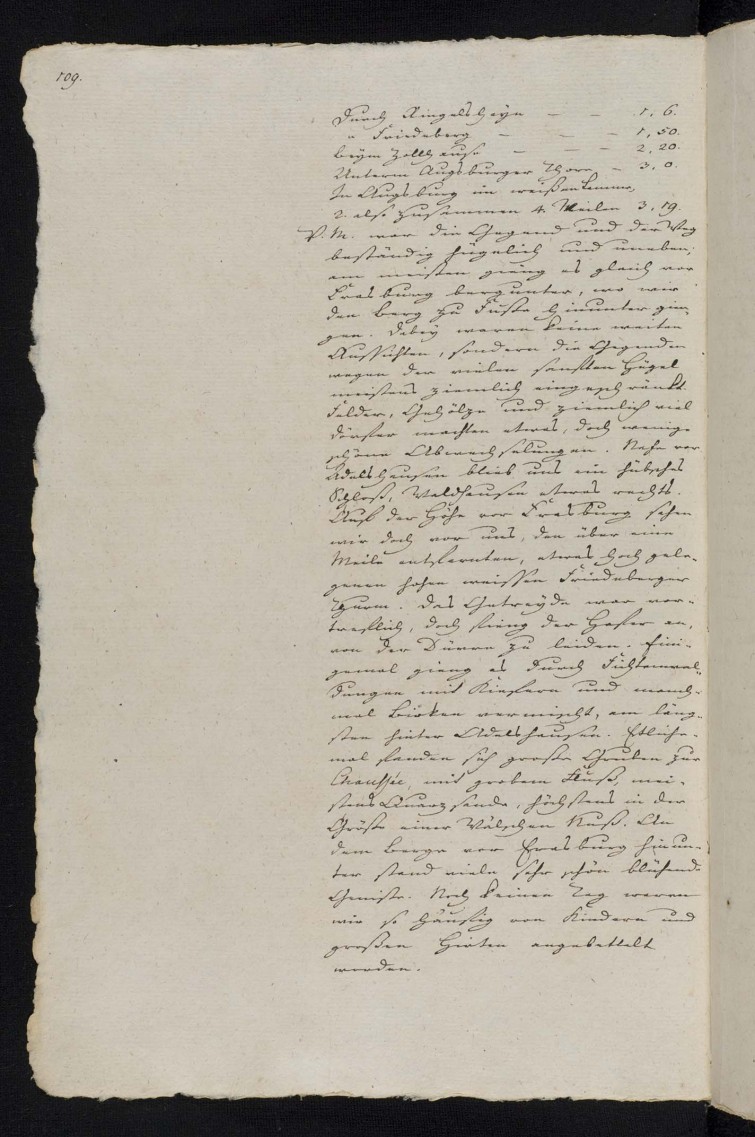 109.
Durch Ringelsheyn — — 1, 6.
" Friedeberg — — — 1, 50.
beym Zollhause — — — 2, 20.
Unterm Augsburger Thore — 3, 0.
In Augsburg im weißen Lamme,
2 also zusammen 4 Meilen 3, 19.
P. M. war die Gegend und der Weg
beständig hügelich und uneben;
am meisten gieng es gleich vor
Erasburg bergunter, wo wir
den Berg zu Fuße hinunter gin-
gen. Dabey waren keine weiten
Aussichten, sondern die Gegenden
wegen der vielen sanften Hügel
meistens ziemlich eingeschränkt.
Felder, Gehölze und ziemlich viel
Dörfer machten etwas, doch wenige
schöne Abwechselungen. Nahe vor
Adelshausen blieb uns ein hübsches
Schloß, Waldhausen etwas rechts.
Auf der Höhe vor Erasburg sahen
wir doch vor uns, den über eine
Meile entfernten, etwas hoch gele-
genen hohen weissen Friedeberger
Thurm. Das Getreyde war vor-
treflich, doch fieng der Hafer an,
von der Dürre zu leiden. Eini-
gemal gieng es durch Fichtenwal-
dungen mit Kiefern und manch-
mal Birken vermischt, am läng-
sten hinter Adelshausen. Etliche-
mal fanden sich große Gruben zur
Chaussée, mit grobem Kies, mei-
stens Quarzsande, höchstens in der
Größe einer Välschen Nuß. An
dem Berge vor Erasburg hinun-
ter stand viele sehr schön blühende
Genista. Noch keinen Tag waren
wir so häufig von Kindern und
großen Hirten angebettelt
worden.